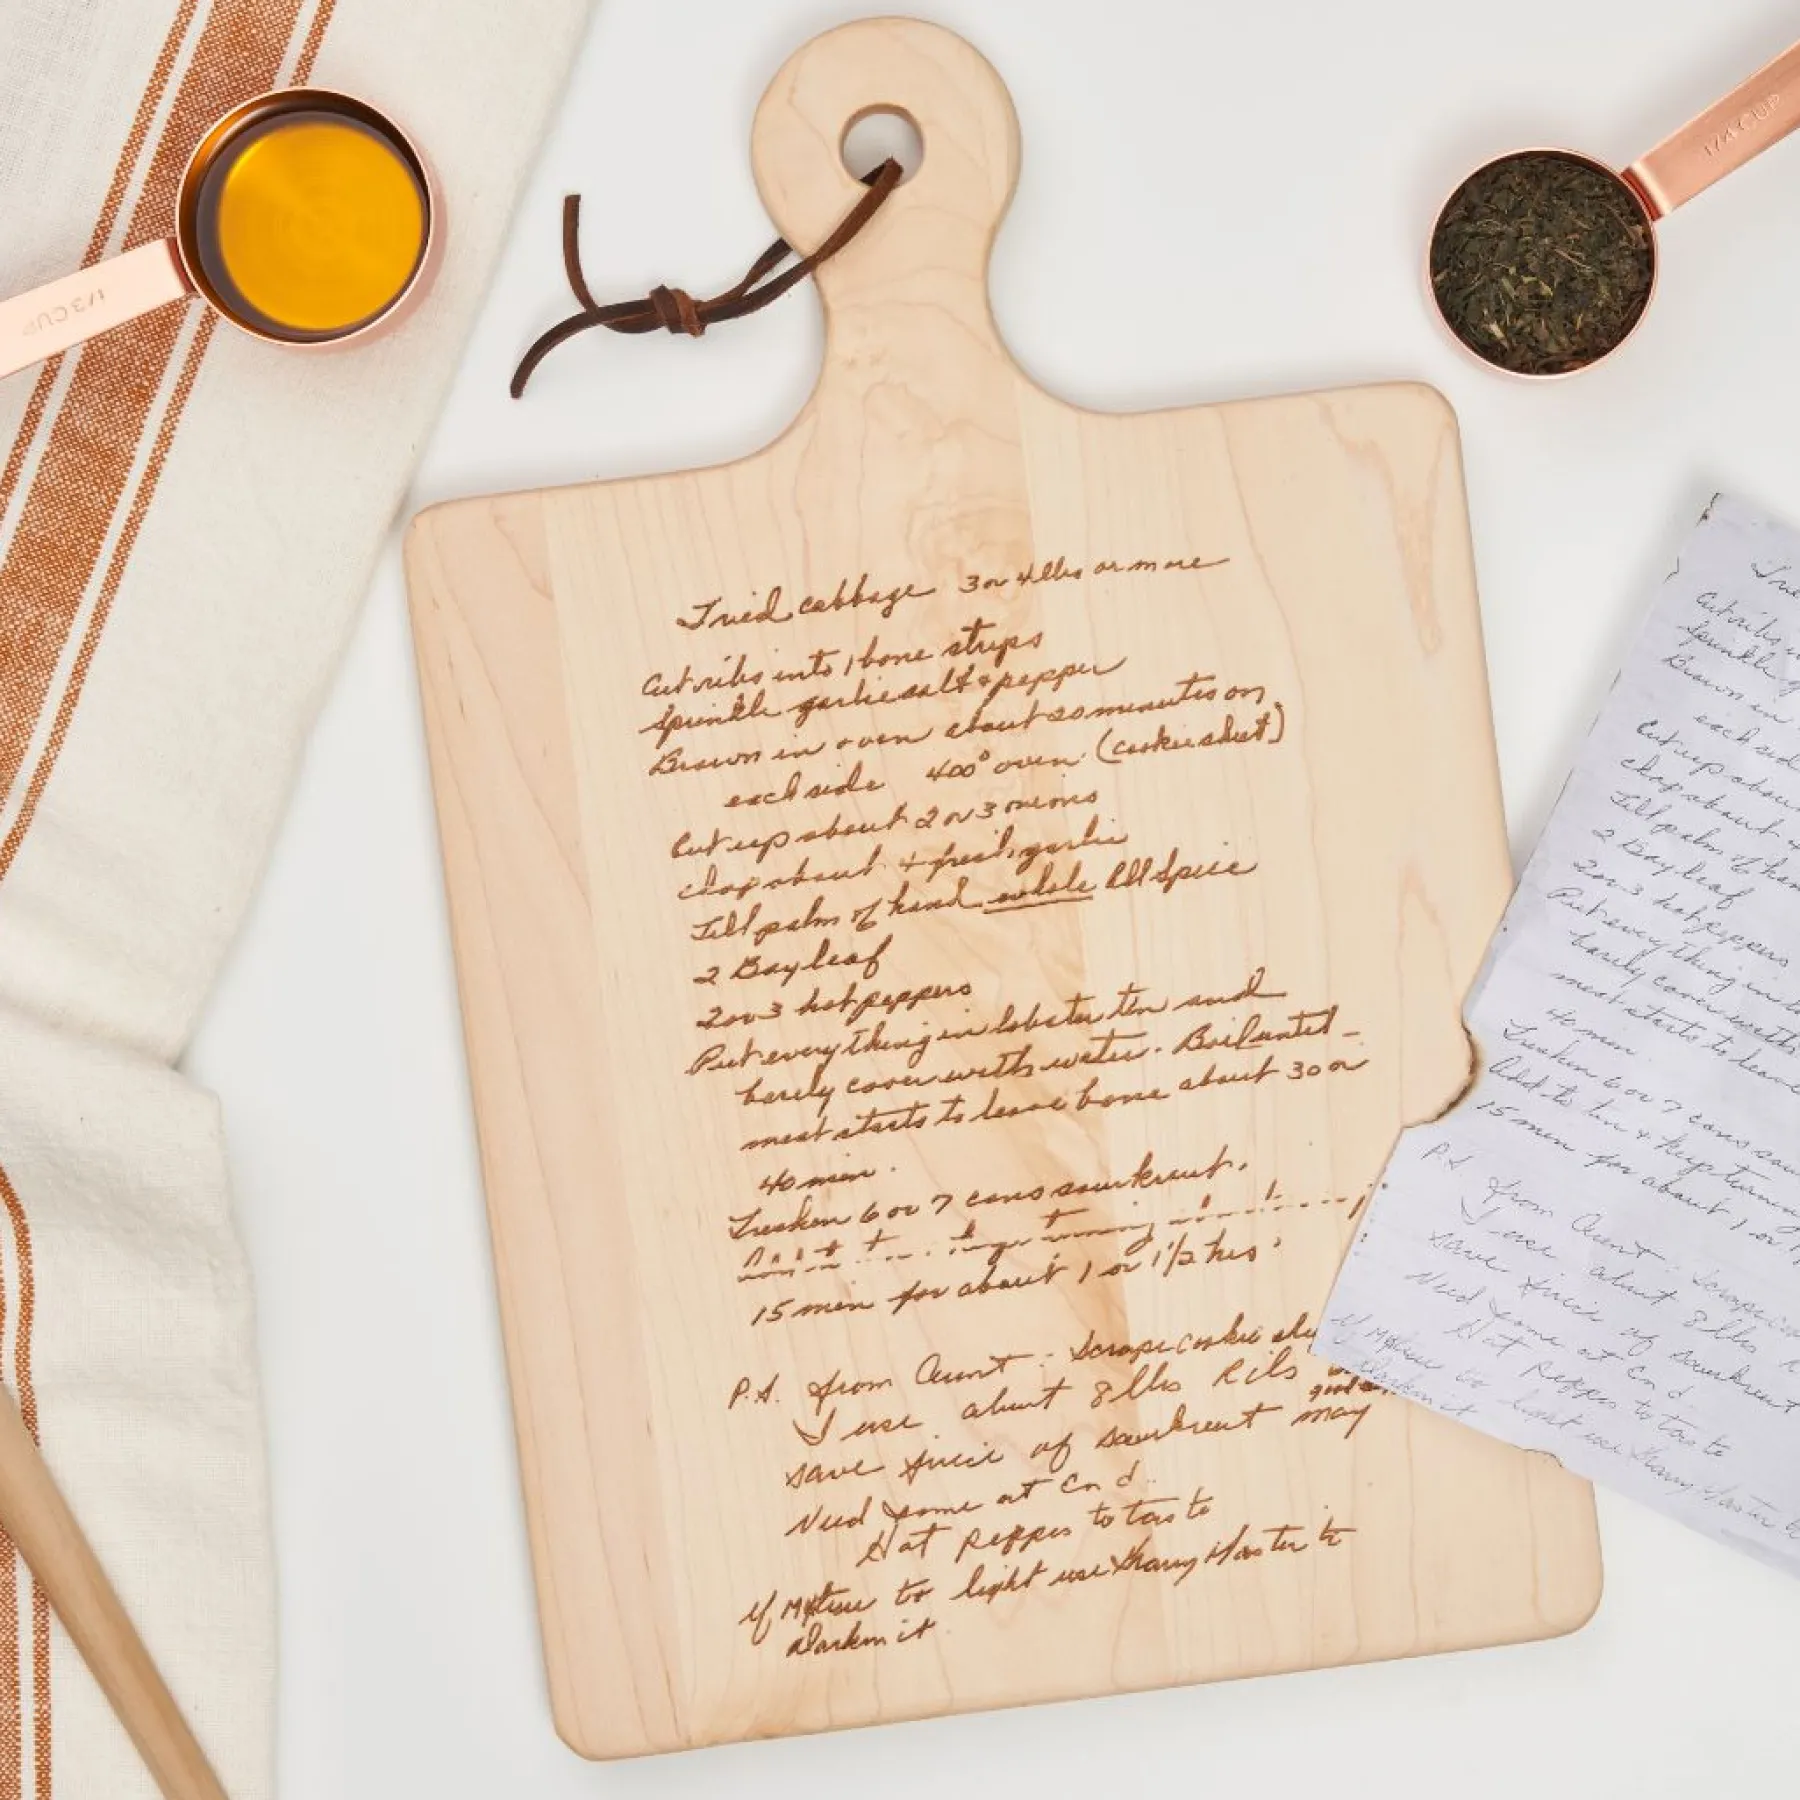 1/3 CUP
1/4 CUP
Fried cabbage 3 or 4 lbs or more
Cut ribs into 1 bone strips
Sprinkle garlic salt & pepper
Brown in oven about 20 minutes on
each side 400° oven (cookie sheet)
Cut up about 2 or 3 onions
chop about 4 fresh garlic
Fill palm of hand whole All Spice
2 Bay leaf
2 or 3 hot peppers
Put everything in lobster tin and
barely cover with water. Boil until
meat starts to leave bone about 30 or
40 min.
6 or 7 cans sourkraut.
turning
15 min for about 1 or 1 1/2 hrs.
P.S. from Aunt: Scrape cookie
I use about 8 lbs Ribs
save juice of sourkraut may
Need some at End
Hot Pepper to taste
if Mixture to light use Gravy Master to
darken it
Cut ribs
Sprinkle
Brown in
each side
Cut up about
chop about 4
Fill palm of han
2 Bay leaf
2 or 3 hot peppers
Put everything in
barely cover with
meat starts to leave
40 min.
6 or 7 cans
Add to tin & keep turning
15 min for about 1 or
P.S. from Aunt: Scrape
I use about 8 lbs
save juice of sourkraut
Need some at End
Hot Pepper to taste
if Mixture to light use Gravy Master to
darken it